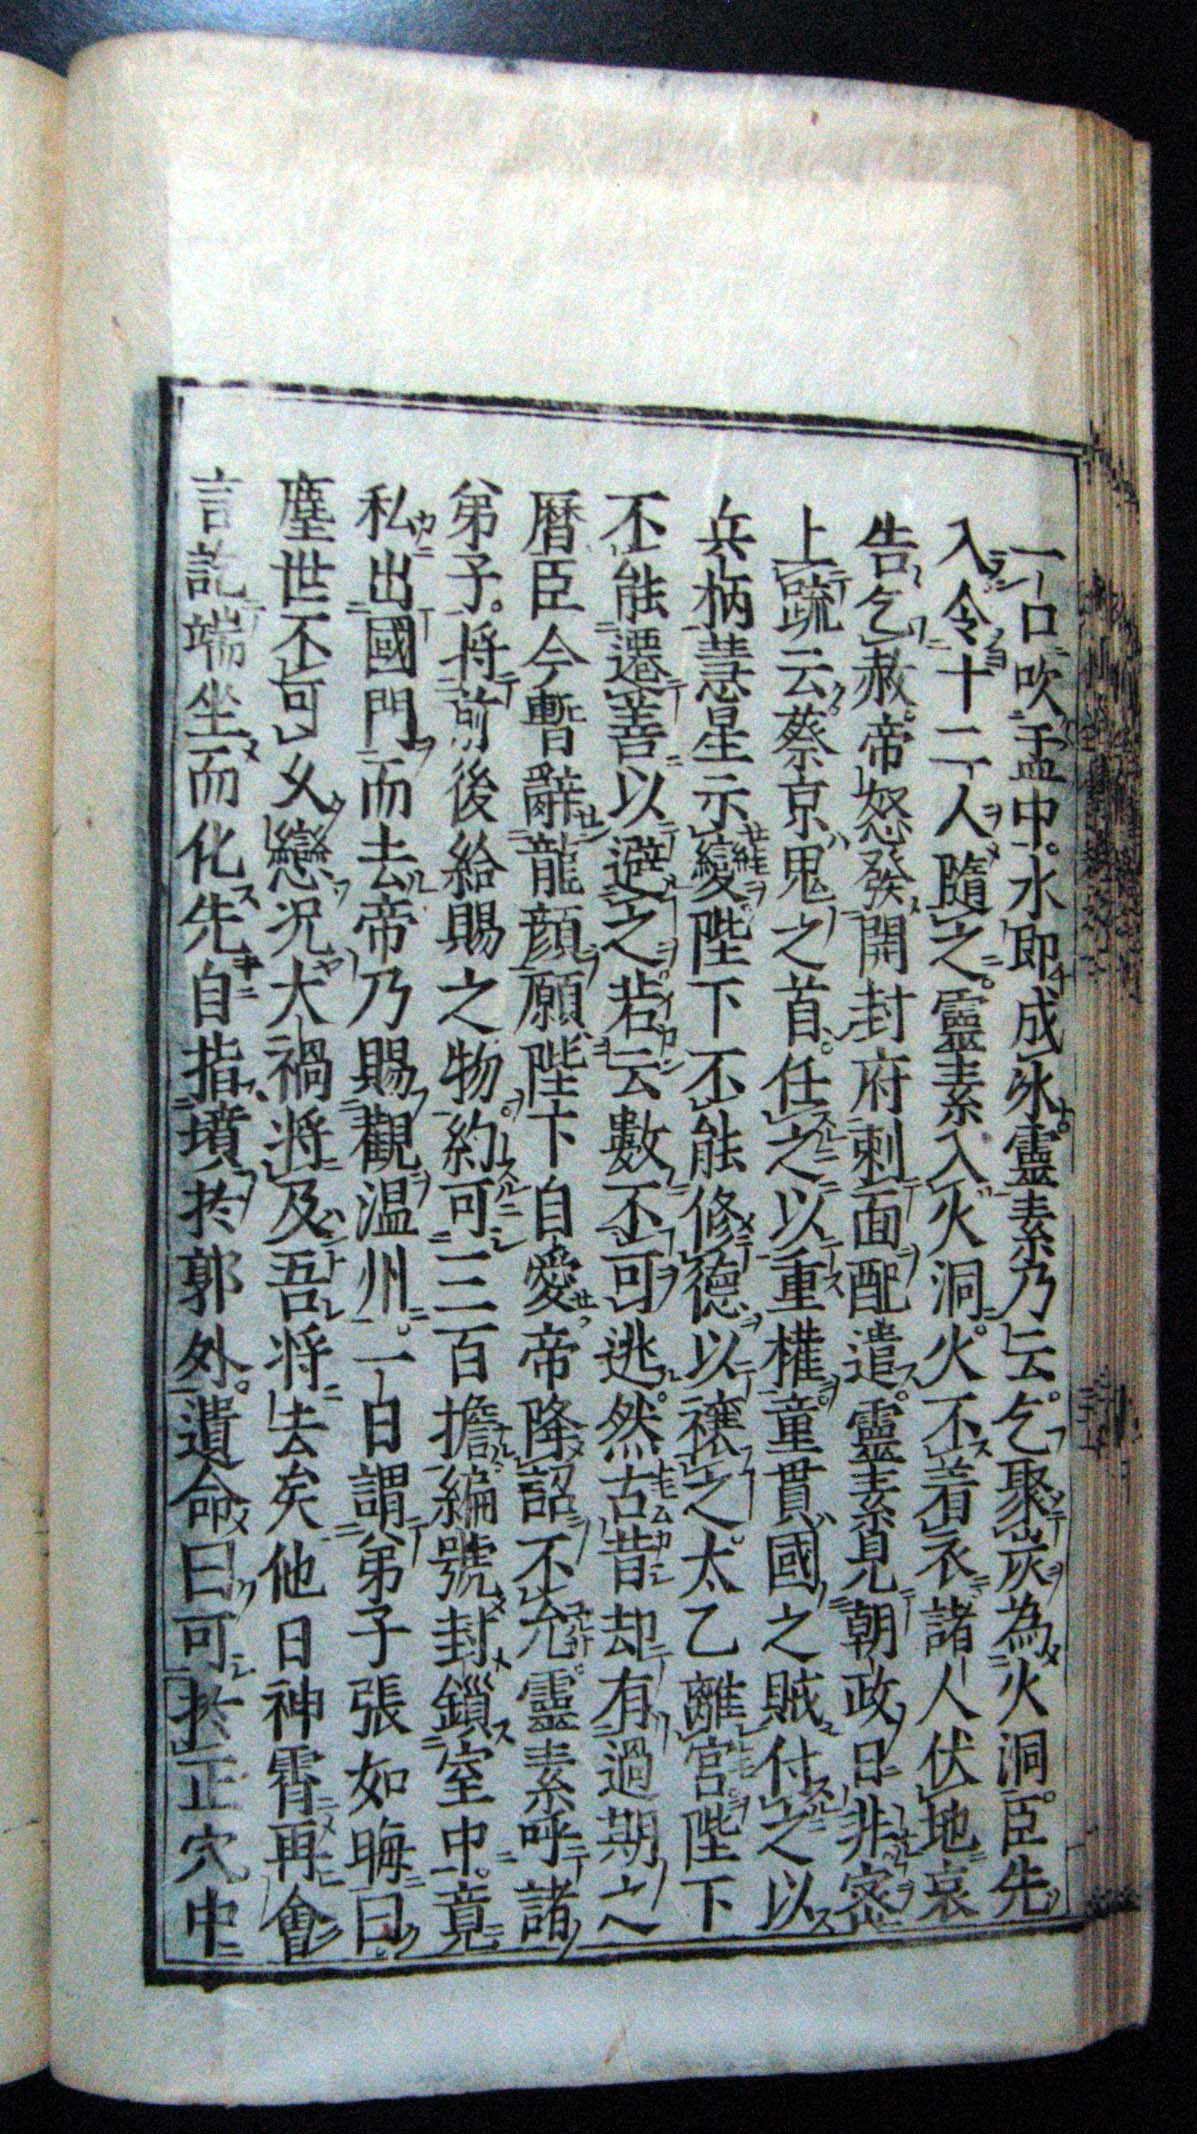 一口吹盂中水即成氷靈素乃云乞聚炭為火洞臣先
入令十二人隨之靈素入火洞火不着衣諸人伏地哀
告乞赦帝怒發開封府刺面配遣靈素見朝政日非密
上疏云蔡京鬼之首任之以重權童貫國之賊付之以
兵柄彗星示變陛下不能修德以禳之太乙離宮陛下
不能遷善以避之若云數不可逃然古昔却有過期之
曆臣今暫辭龍顏願陛下自愛帝降詔不允靈素呼諸
弟子將前後給賜之物約可三百擔編號封鎖室中竟
私出國門而去帝乃賜觀温州一日謂弟子張如晦曰
塵世不可久戀况大禍將及吾將去矣他日神霄再會
言訖端坐而化先自指墳於郭外遺命曰可於正穴中